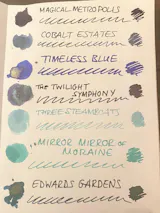 MAGICAL METROPOLIS
COBALT ESTATES
TIMELESS BLUE
THE TWILIGHT
SYMPHONY
THREE STEAMBOATS
MIRROR MIRROR OF
MORAINE
EDWARDS GARDENS